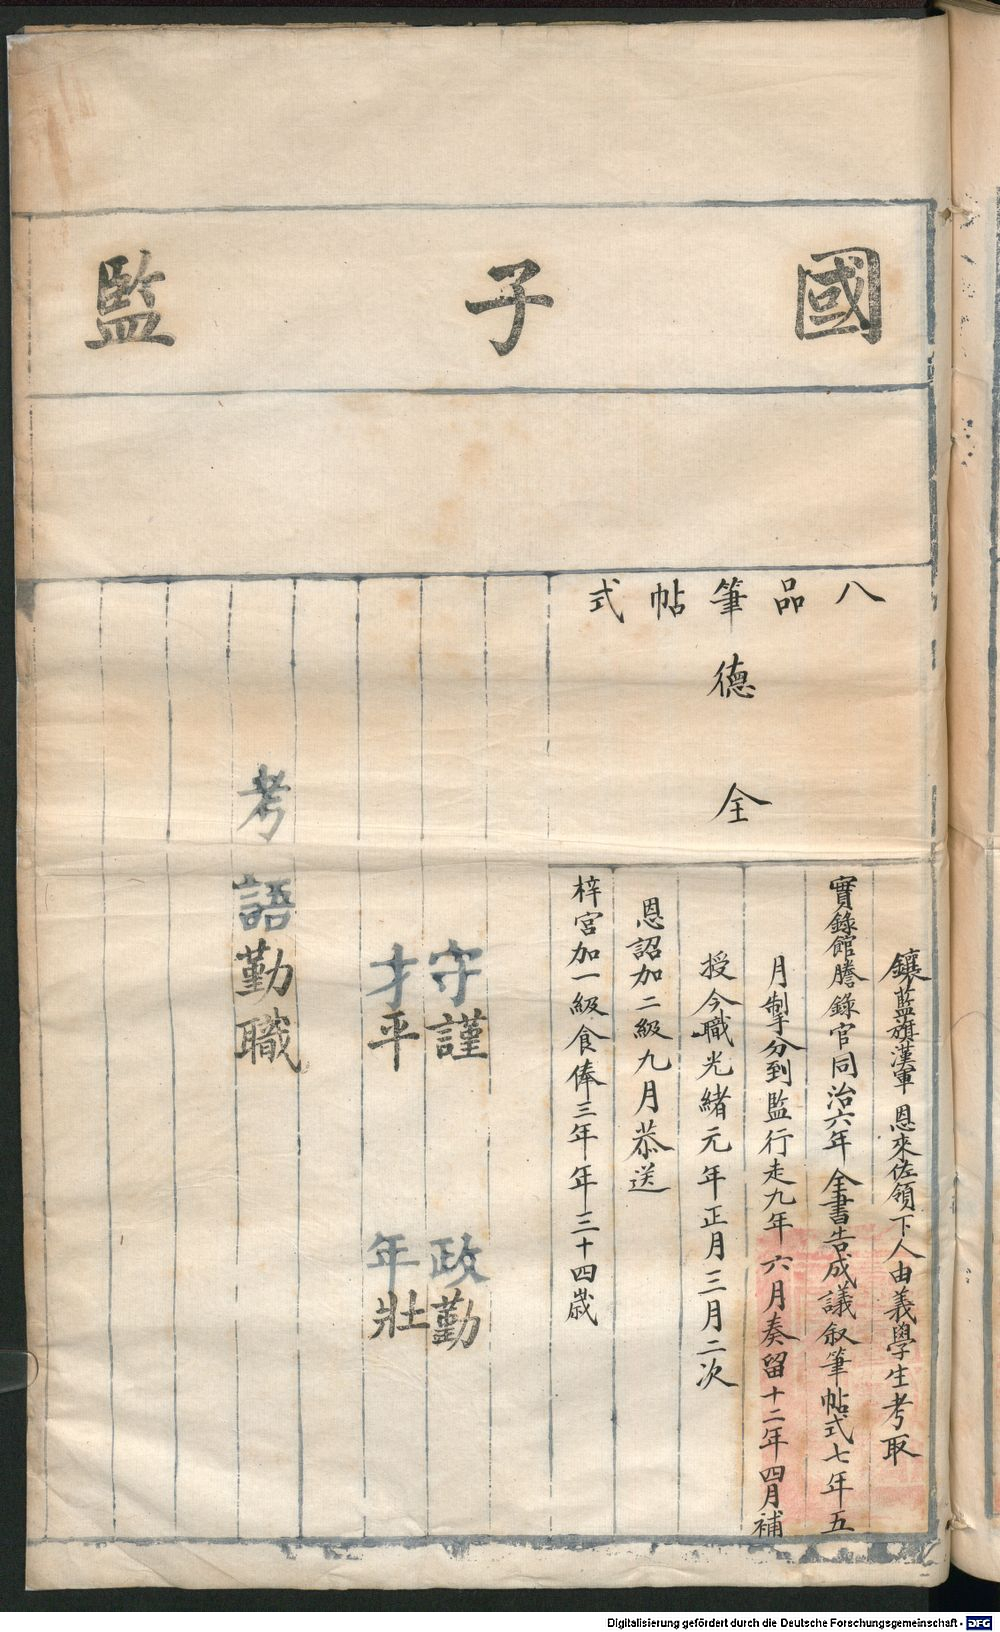 國子監
八品筆帖式
德全
鑲藍旗漢軍恩來佐領下人由義學生考取
實錄館謄錄官同治六年全書告成議敘筆帖式七年五
月掣分到監行走九年六月奏留十二年四月補
授今職光緒元年正月三月二次
恩詔加二級九月恭送
梓宮加一級食俸三年年三十四歲
守謹 政勤
才平 年壯
考語勤職
Digitalisierung gefördert durch die Deutsche Forschungsgemeinschaft - DFG